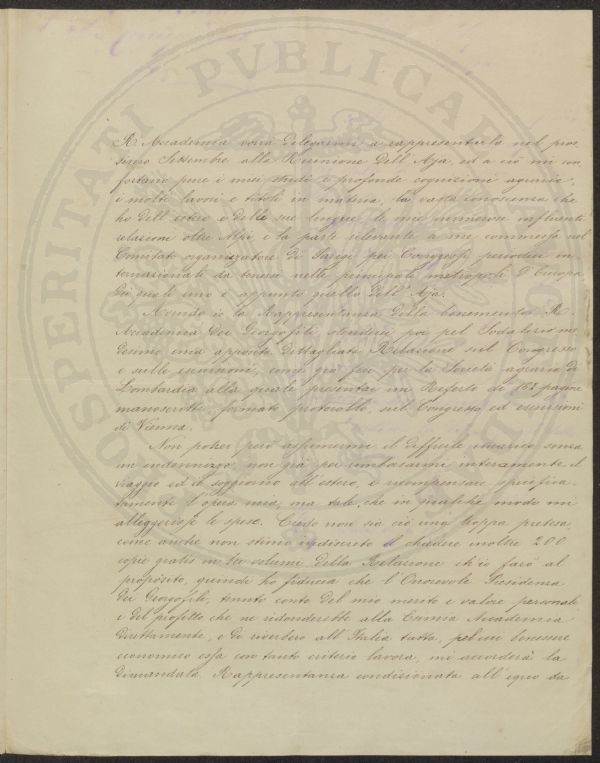 PROSPERITATI PVBLICAE AVGENDAE
R. Accademia vorrà delegarmi a rappresentarla nel pros
simo Settembre alla Riunione dell'Aja, ed a ciò mi con
fortano pure i miei studi e profonde cognizioni agrarie,
i molti lavori e titoli in materia, la vasta conoscenza che
ho dell'estero e delle sue lingue, le mie numerose influenti
relazioni oltre Alpi, e la parte rilevante a me commessa nel
Comitato organizzatore di Parigi pei Congressi periodici in
ternazionali da tenersi nelle principali metropoli d'Europa
dei quali uno è appunto quello dell'Aja.
Avendo io la Rappresentanza della benemerita R.
Accademia dei Georgofili, stenderei poi pel Sodalizio me
desimo una apposita dettagliata Relazione sul Congresso
e sulle escursioni, come già feci per la Società agraria di
Lombardia alla quale presentai un Referto di 163 pagine
manoscritte, formato protocollo, sul Congresso ed escursioni
di Vienna.
Non potrei però assumermi il difficile incarico senza
un indennizzo, non già per rimborsarmi interamente il
viaggio ed il soggiorno all'estero, e ricompensare specifica
tamente l'opera mia, ma tale che in qualche modo mi
alleggerisse le spese. Credo non sia ciò una troppa pretesa,
come anche non stimo indiscreto il chiedere inoltre 200
copie gratis in volumi della Relazione ch'io farò al
proposito, quindi ho fiducia che l'Onorevole Presidenza
dei Georgofili, tenuto conto del mio merito e valore personale
e del profitto che ne ridonderebbe alla Esimia Accademia
direttamente, e di riverbero all'Italia tutta, pel cui benessere
economico essa con tanto criterio lavora, mi accorderà la
dimandata Rappresentanza condizionata all'equo da